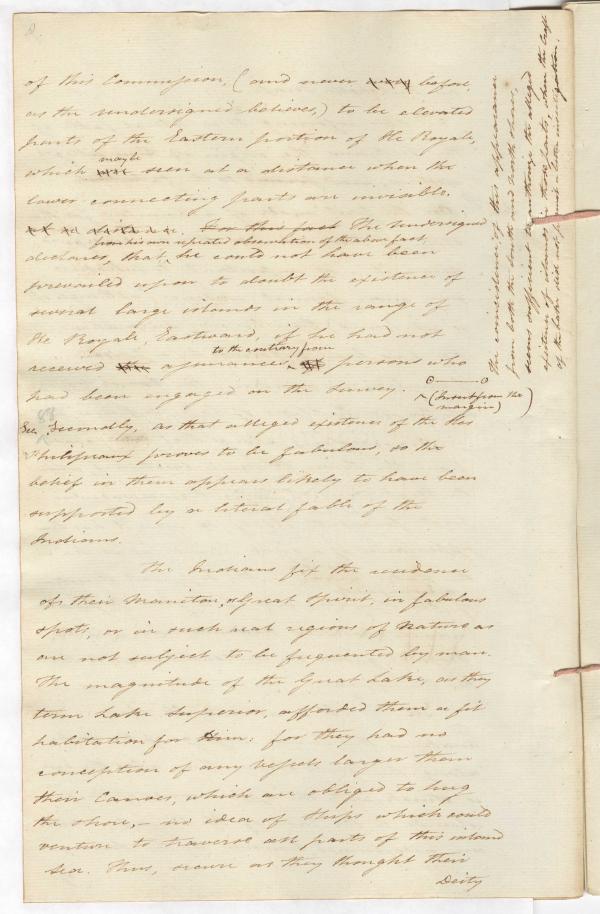 of this Commission, (and never before,
as the undersigned believes,) to be elevated
parts of the Eastern portion of Ile Royale,
may be
which seen at a distance when the
lower connecting parts are invisible.
For this fact The Undersigned
from his own repeated observation of the above fact,
declares, that, he could not have been
prevailed upon to doubt the existence of
several large islands in the range of
Ile Royale, Eastward, if he had not
to the contrary from
received assurances persons who
had been engaged on the Survey.
(Insert from the
margin)
Secondly, as that alleged existence of the Iles
Philipeaux proves to be fabulous, so the
belief in them appears likely to have been
supported by a literal fable of the
Indians.
The Indians fix the residence
of their Manitou, or Great Spirit, in fabulous
spots, or in such real regions of Nature as
are not subject to be frequented by man.
The magnitude of the Great Lake, as they
term Lake Superior, afforded them a fit
habitation for Him: for they had no
conception of any vessels larger than
their Canoes, which are obliged to hug
the shore, – no idea of Ships which could
venture to traverse all parts of this inland
Sea. Thus, secure as they thought their
Deity
The coincidence of this appearance
from both the South and North shore,
seems sufficient to authorize the alleged
existence of islands in those parts, when the
of the Lake did not permit a close investigation.